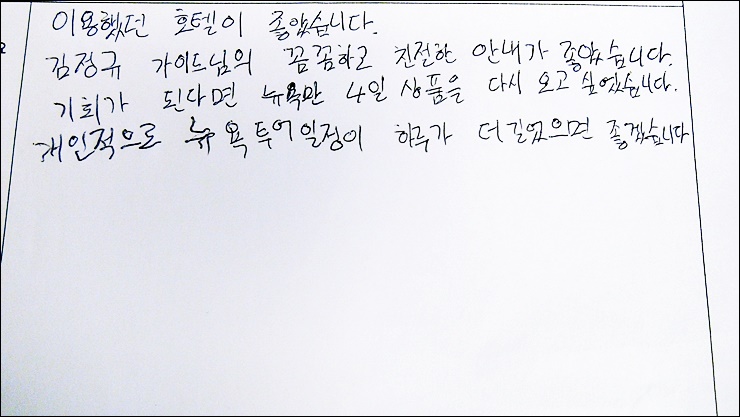 이용했던 호텔이 좋았습니다.
김정규 가이드님의 꼼꼼하고 친절한 안내가 좋았습니다.
기회가 된다면 뉴욕만 4일 상품을 다시 오고 싶었습니다.
개인적으로 뉴욕투어일정이 하루가 더길었으면 좋겠습니다